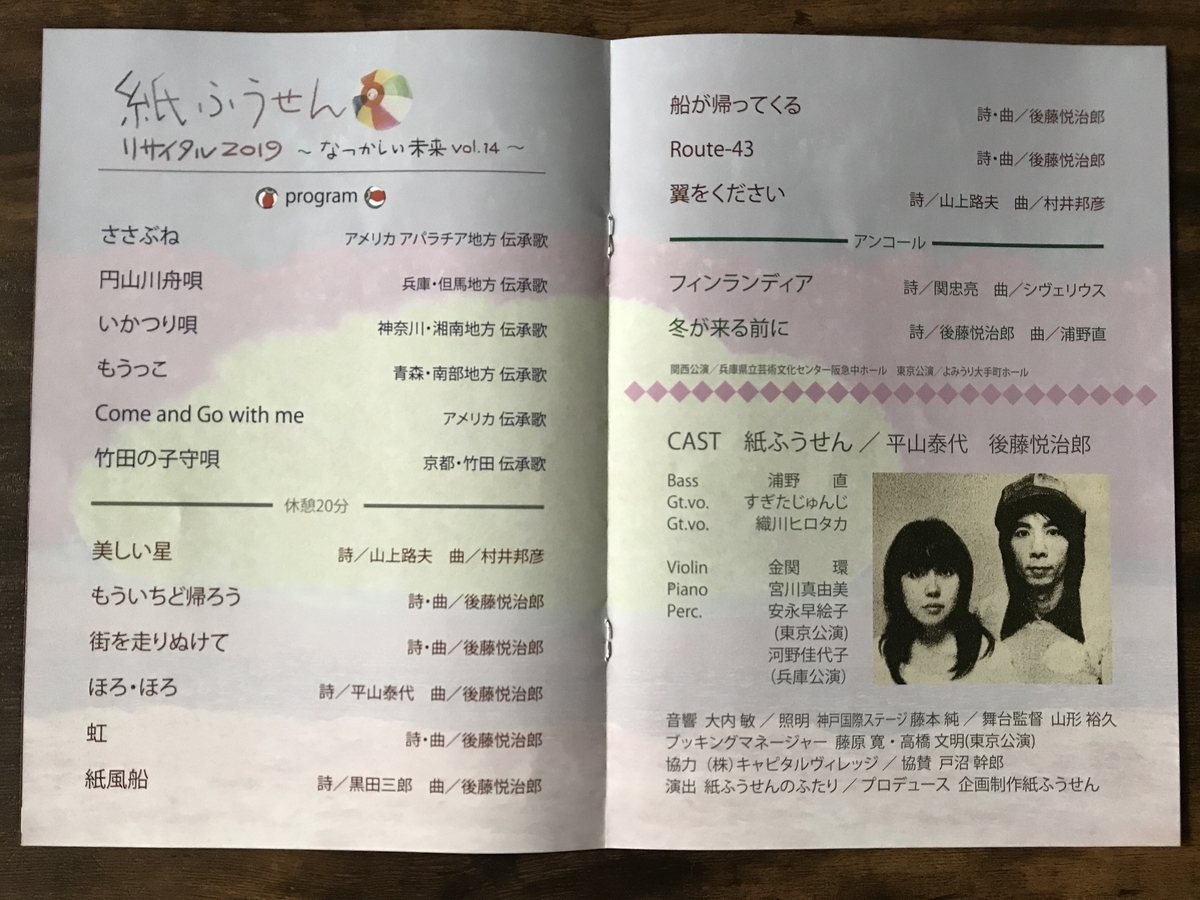 紙ふうせん
リサイタル2019 ～なつかしい未来 vol.14～
program
ささぶね アメリカ アパラチア地方 伝承歌
円山川舟唄 兵庫・但馬地方 伝承歌
いかつり唄 神奈川・湘南地方 伝承歌
もうっこ 青森・南部地方 伝承歌
Come and Go with me アメリカ 伝承歌
竹田の子守唄 京都・竹田 伝承歌
休憩20分
美しい星 詩／山上路夫 曲／村井邦彦
もういちど帰ろう 詩・曲／後藤悦治郎
街を走りぬけて 詩・曲／後藤悦治郎
ほろ・ほろ 詩／平山泰代 曲／後藤悦治郎
虹 詩・曲／後藤悦治郎
紙風船 詩／黒田三郎 曲／後藤悦治郎
船が帰ってくる 詩・曲／後藤悦治郎
Route-43 詩・曲／後藤悦治郎
翼をください 詩／山上路夫 曲／村井邦彦
アンコール
フィンランディア 詩／関忠亮 曲／シヴェリウス
冬が来る前に 詩／後藤悦治郎 曲／浦野直
関西公演／兵庫県立芸術文化センター阪急中ホール 東京公演／よみうり大手町ホール
CAST 紙ふうせん ／ 平山泰代 後藤悦治郎
Bass 浦野 直
Gt.vo. すぎたじゅんじ
Gt.vo. 織川ヒロタカ
Violin 金関 環
Piano 宮川真由美
Perc. 安永早絵子
(東京公演)
河野佳代子
(兵庫公演)
音響 大内 敏 ／ 照明 神戸国際ステージ 藤本 純 ／ 舞台監督 山形 裕久
ブッキングマネージャー 藤原 寛・高橋 文明(東京公演)
協力 (株)キャピタルヴィレッジ ／ 協賛 戸沼 幹郎
演出 紙ふうせんのふたり ／ プロデュース 企画制作紙ふうせん